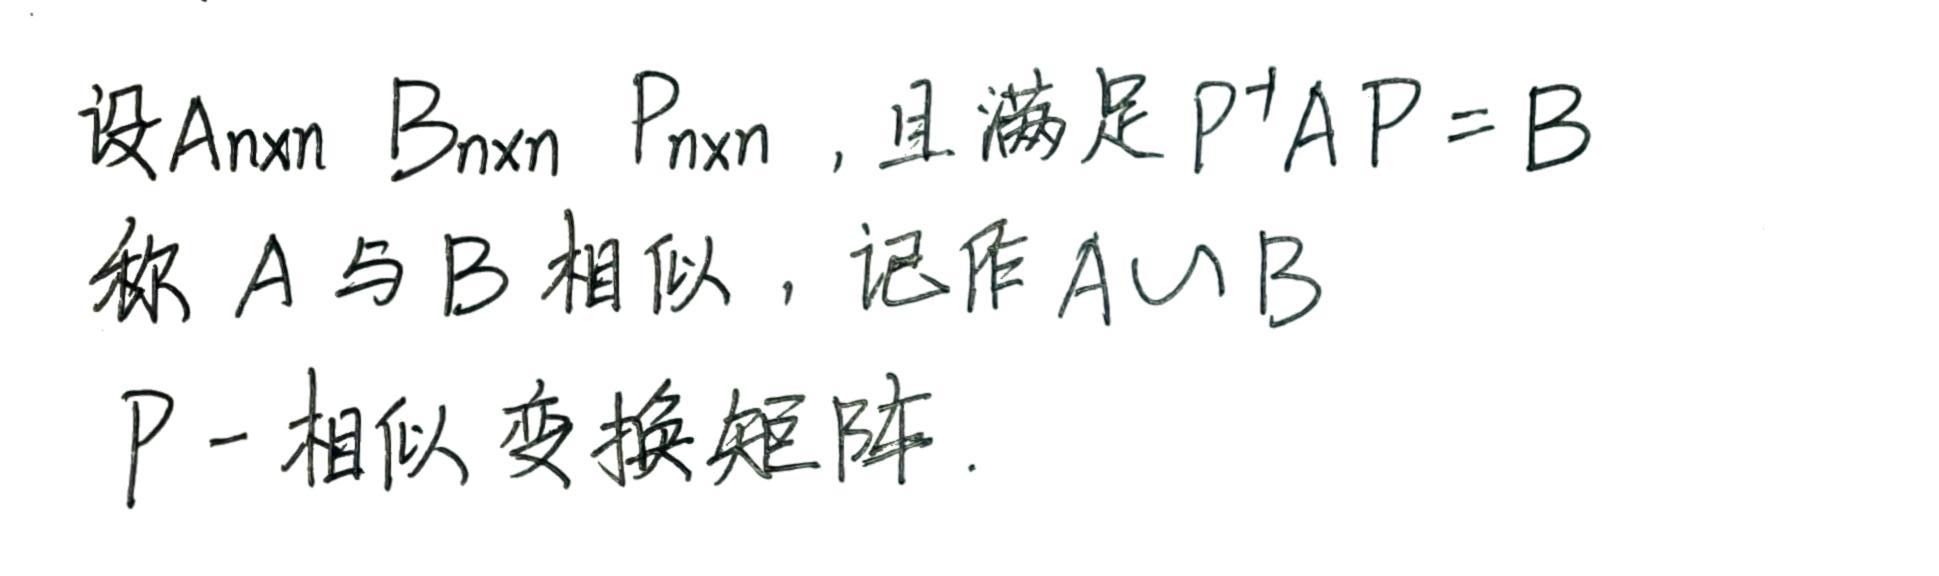 设Aₙₓₙ Bₙₓₙ Pₙₓₙ，且满足P⁻¹AP=B
称 A 与 B 相似，记作 A∽B
P - 相似变换矩阵.